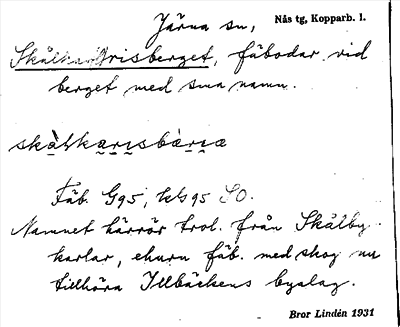 Järna sn,
Nås tg, Kopparb. l.
Skålkarlsberget, fäbodar vid
berget med sma namn.
Fäb. G95, hts 95 SO.
Namnet härrör trol. från Skålby
karlar, ehuru fäb. med skog nu
tillhöra Illbäckens byalag.
Bror Lindén 1931